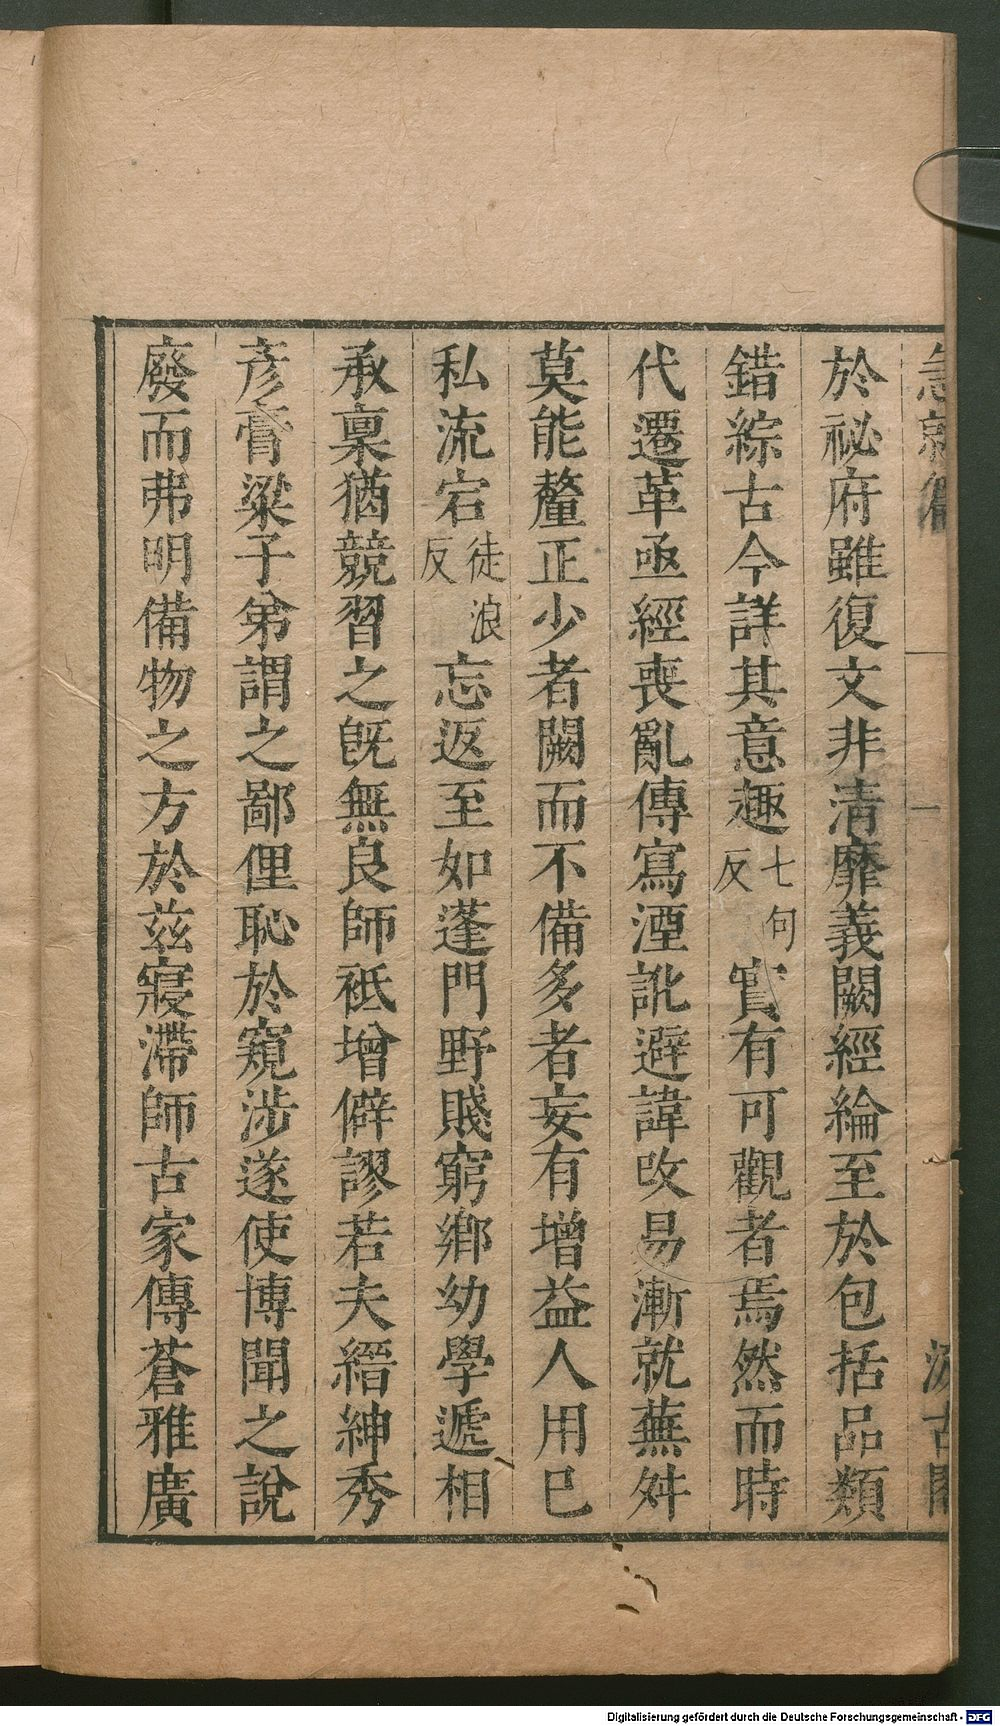 急就篇 一 汲古閣
於祕府雖復文非清靡義闕經綸至於包括品類
錯綜古今詳其意趣七句反實有可觀者焉然而時
代遷革亟經喪亂傳寫湮訛避諱改易漸就蕪舛
莫能釐正少者闕而不備多者妄有增益人用已
私流宕徒浪反忘返至如蓬門野賤窮鄉幼學遞相
承稟猶競習之旣無良師祗增僻謬若夫縉紳秀
彦膏粱子弟謂之鄙俚恥於窺涉遂使博聞之說
廢而弗明備物之方於茲寢滯師古家傳蒼雅廣
Digitalisierung gefördert durch die Deutsche Forschungsgemeinschaft - DFG